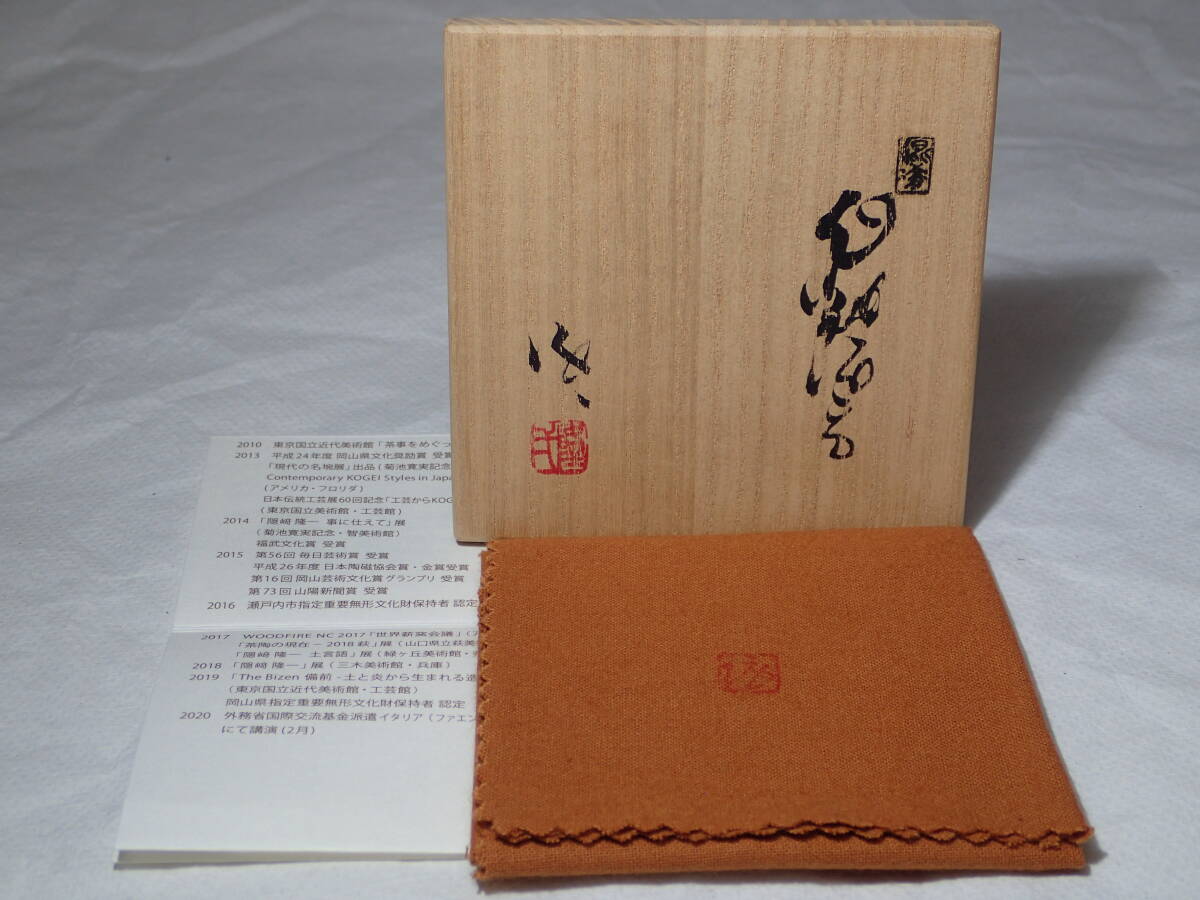 2010 東京国立近代美術館「茶事をめぐっ
2013 平成24年度 岡山県文化奨励賞 受賞
「現代の名碗展」出品(菊池寛実記念
Contemporary KOGEI Styles in Japa
(アメリカ・フロリダ)
日本伝統工芸展60回記念「工芸からKOG
(東京国立美術館・工芸館)
2014 「隠﨑 隆一 事に仕えて」展
(菊池寛実記念・智美術館)
福武文化賞 受賞
2015 第56回 毎日芸術賞 受賞
平成26年度 日本陶磁協会賞・金賞受賞
第16回 岡山芸術文化賞 グランプリ 受賞
第73回 山陽新聞賞 受賞
2016 瀬戸内市指定重要無形文化財保持者 認定
2017 WOODFIRE NC 2017「世界薪窯会議」(ア
「茶陶の現在-2018 萩」展(山口県立萩美
「隠﨑 隆一 土言語」展(緑ヶ丘美術館・
2018 「隠﨑 隆一」展(三木美術館・兵庫)
2019 「The Bizen 備前-土と炎から生まれる造
(東京国立近代美術館・工芸館)
岡山県指定重要無形文化財保持者 認定
2020 外務省国際交流基金派遣イタリア(ファエン
にて講演(2月)